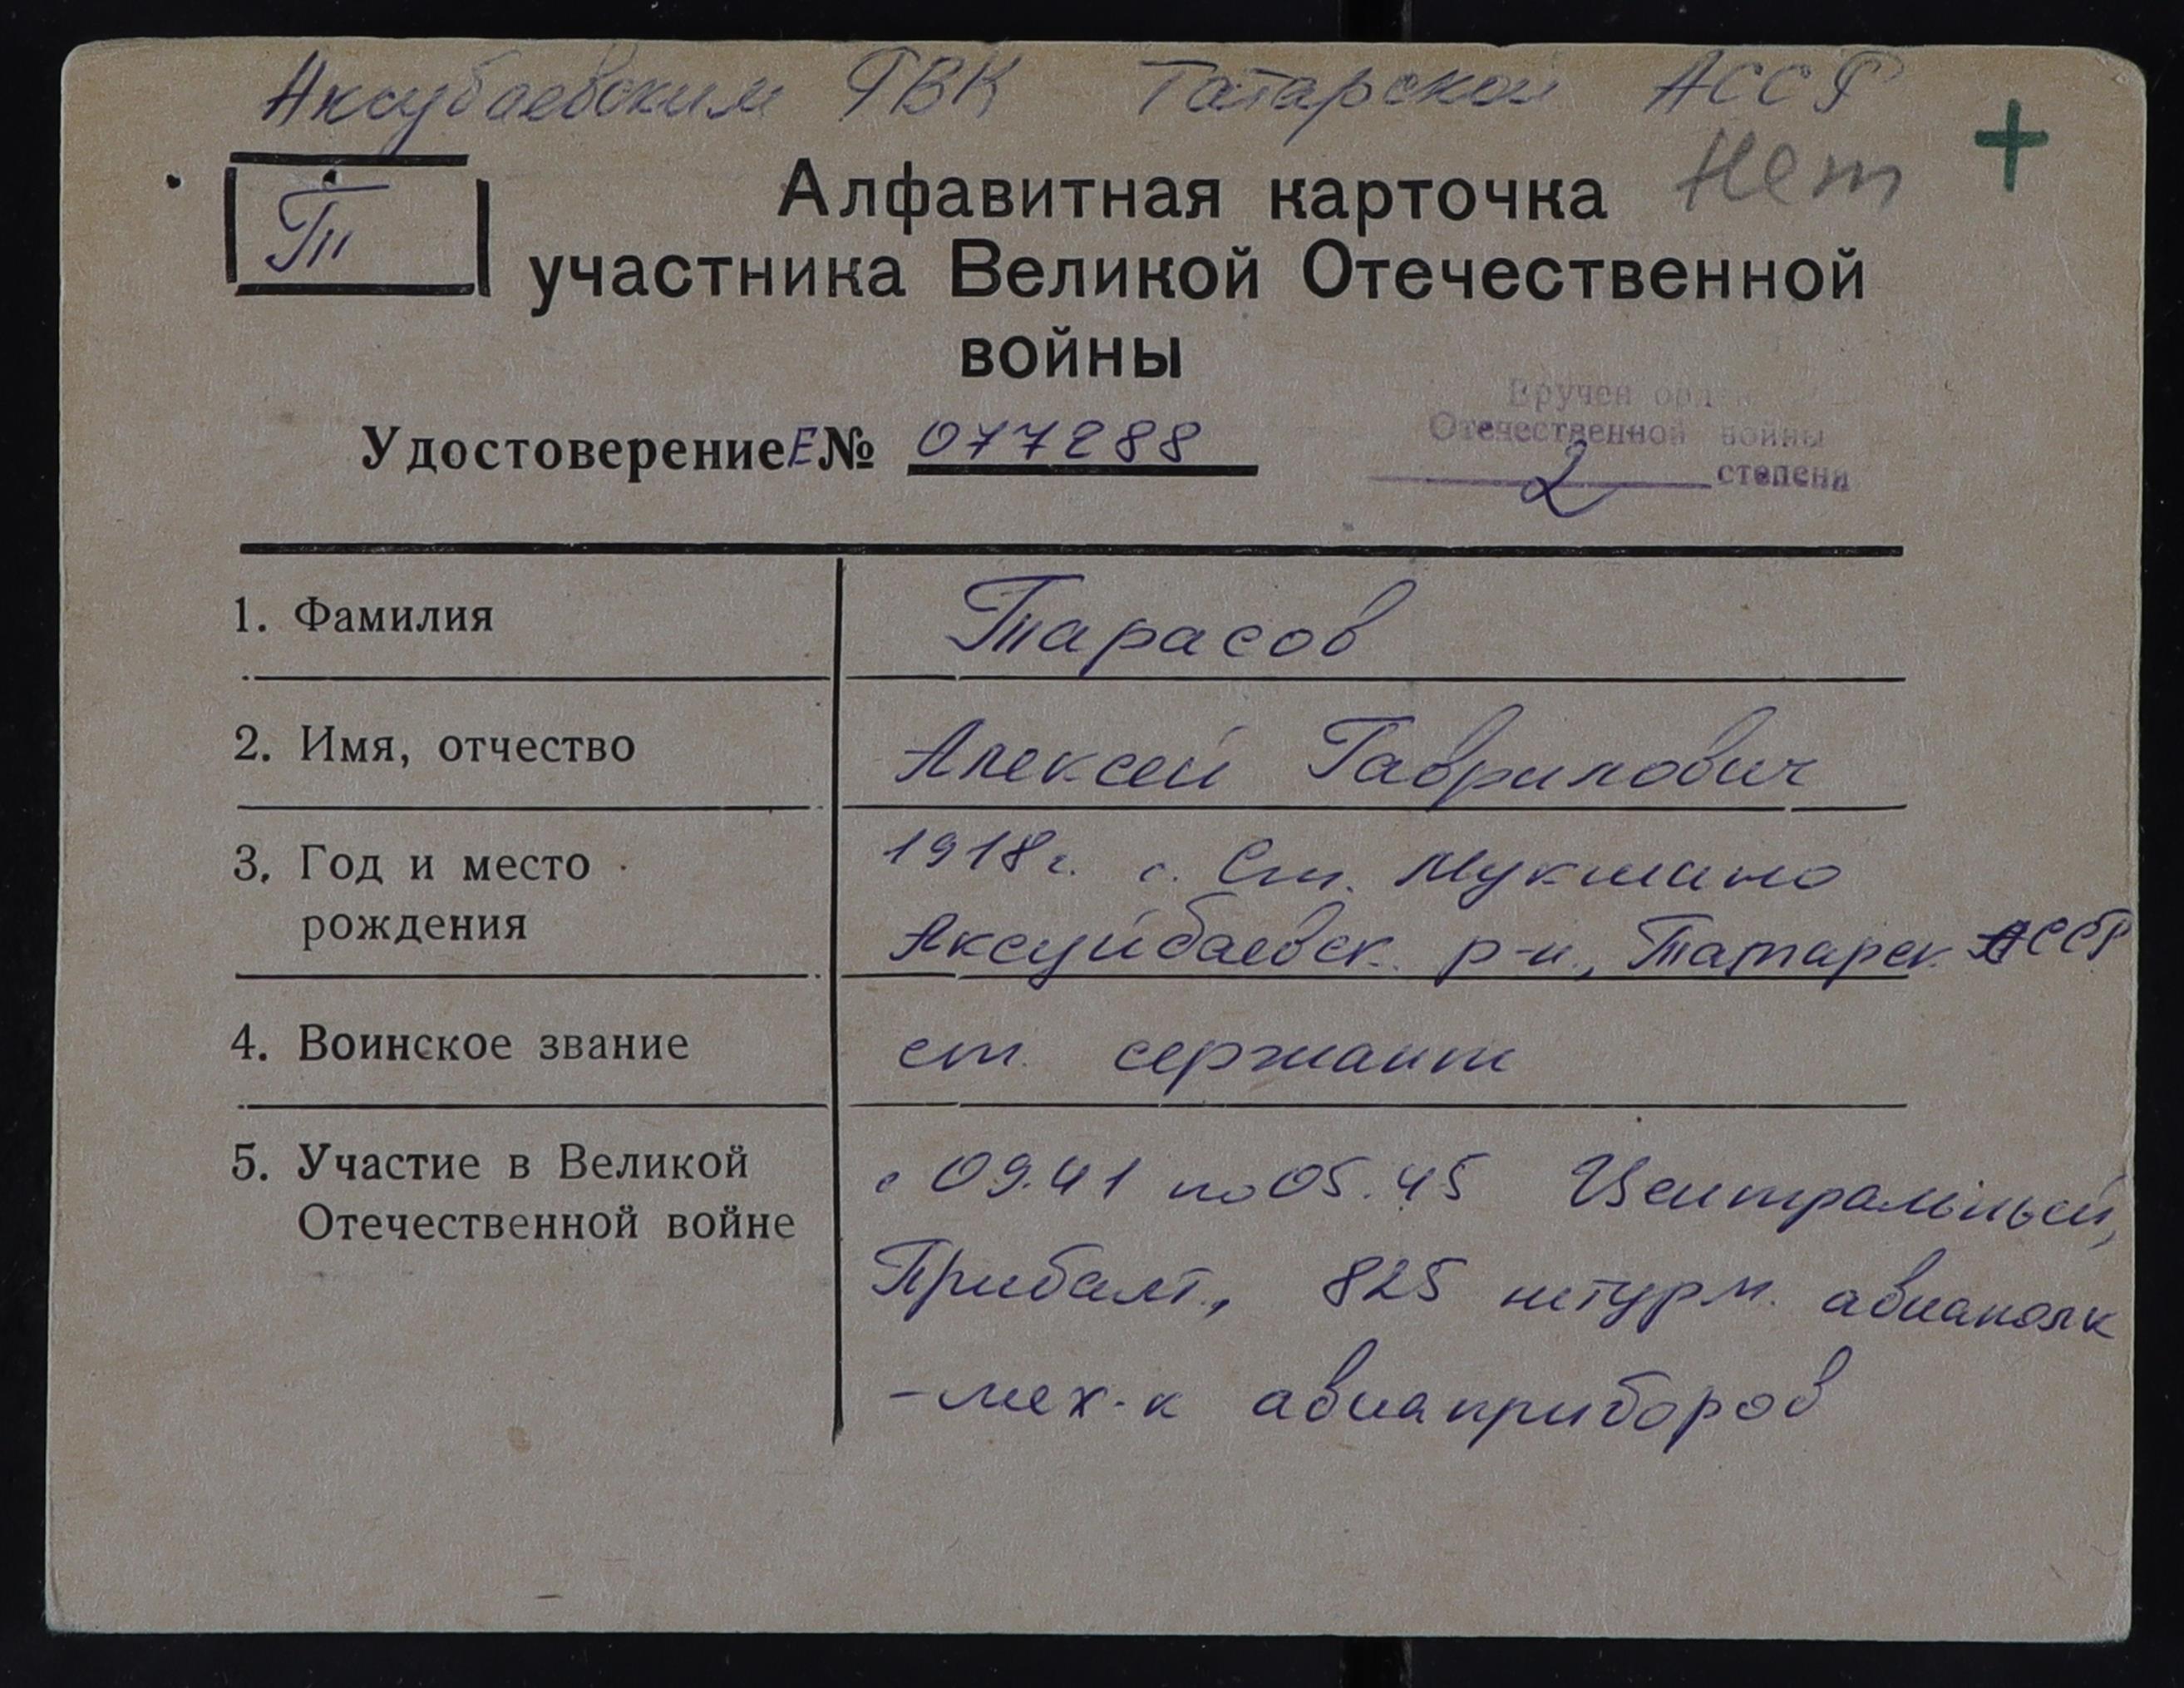 Аксубаевским РВК Татарской АССР
Нет +
Т
Алфавитная карточка
участника Великой Отечественной
войны
Вручен орден
Отечественной войны
2 степени
Удостоверение Е № 077288
1. Фамилия Тарасов
2. Имя, отчество Алексей Гаврилович
3. Год и место рождения 1918 г. с. Ст. Мукмино
Аксуйбаевск. р-н, Татарск. АССР
4. Воинское звание ст. сержант
5. Участие в Великой Отечественной войне с 09.41 по 05.45 Центральный,
Прибалт., 825 штурм. авиаполк
- мех-к авиаприборов